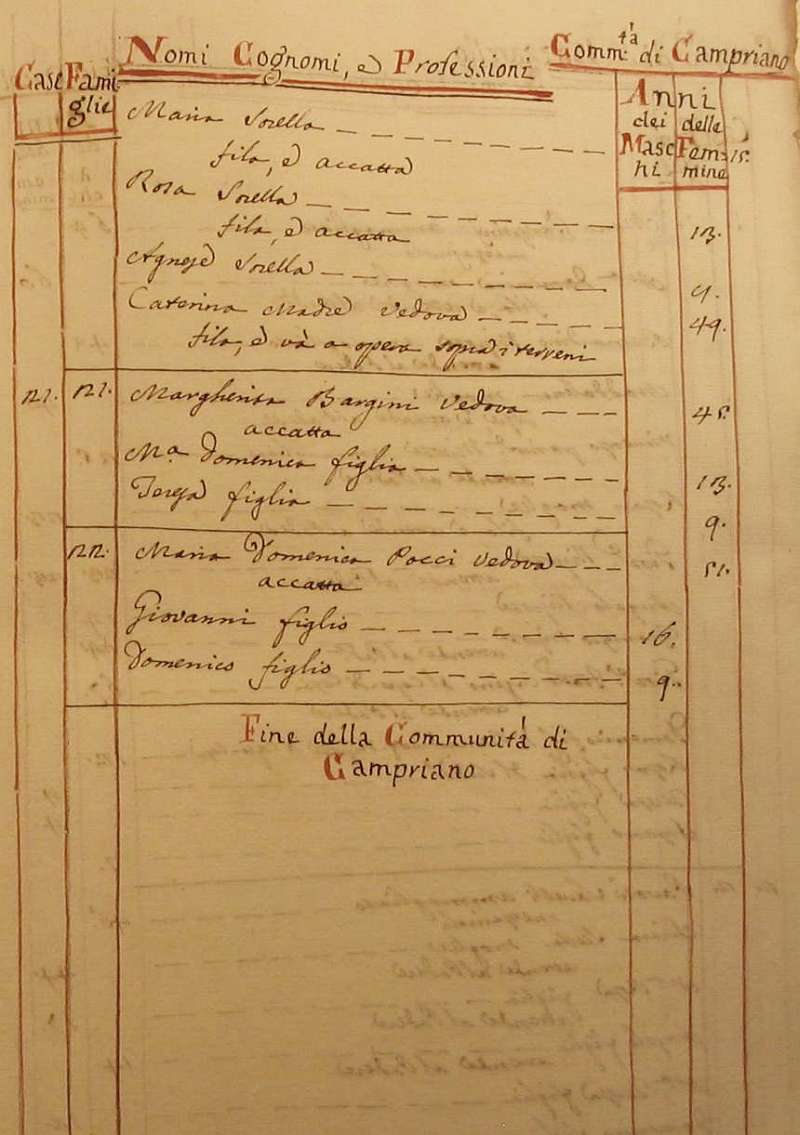 Nomi Cognomi, e Professioni Comm.tà di Campriano
Case Famiglie
Anni dei Maschi
Anni delle Femmine
Maria Sorella 15.
fila, e accatta
Rosa Sorella 13.
fila, e accatta
Agnese Sorella 9.
Caterina Madre Vedova 49.
fila, e và a opera sopra i terreni
21. 21. Margherita Bargini Vedova 45
accatta
M.a Domenica figlia 13.
Teresa figlia 9.
22. Maria Domenica Pocci Vedova 51.
accatta
Giovanni figlio 16.
Domenico figlio 9.
Fine della Communità di
Campriano